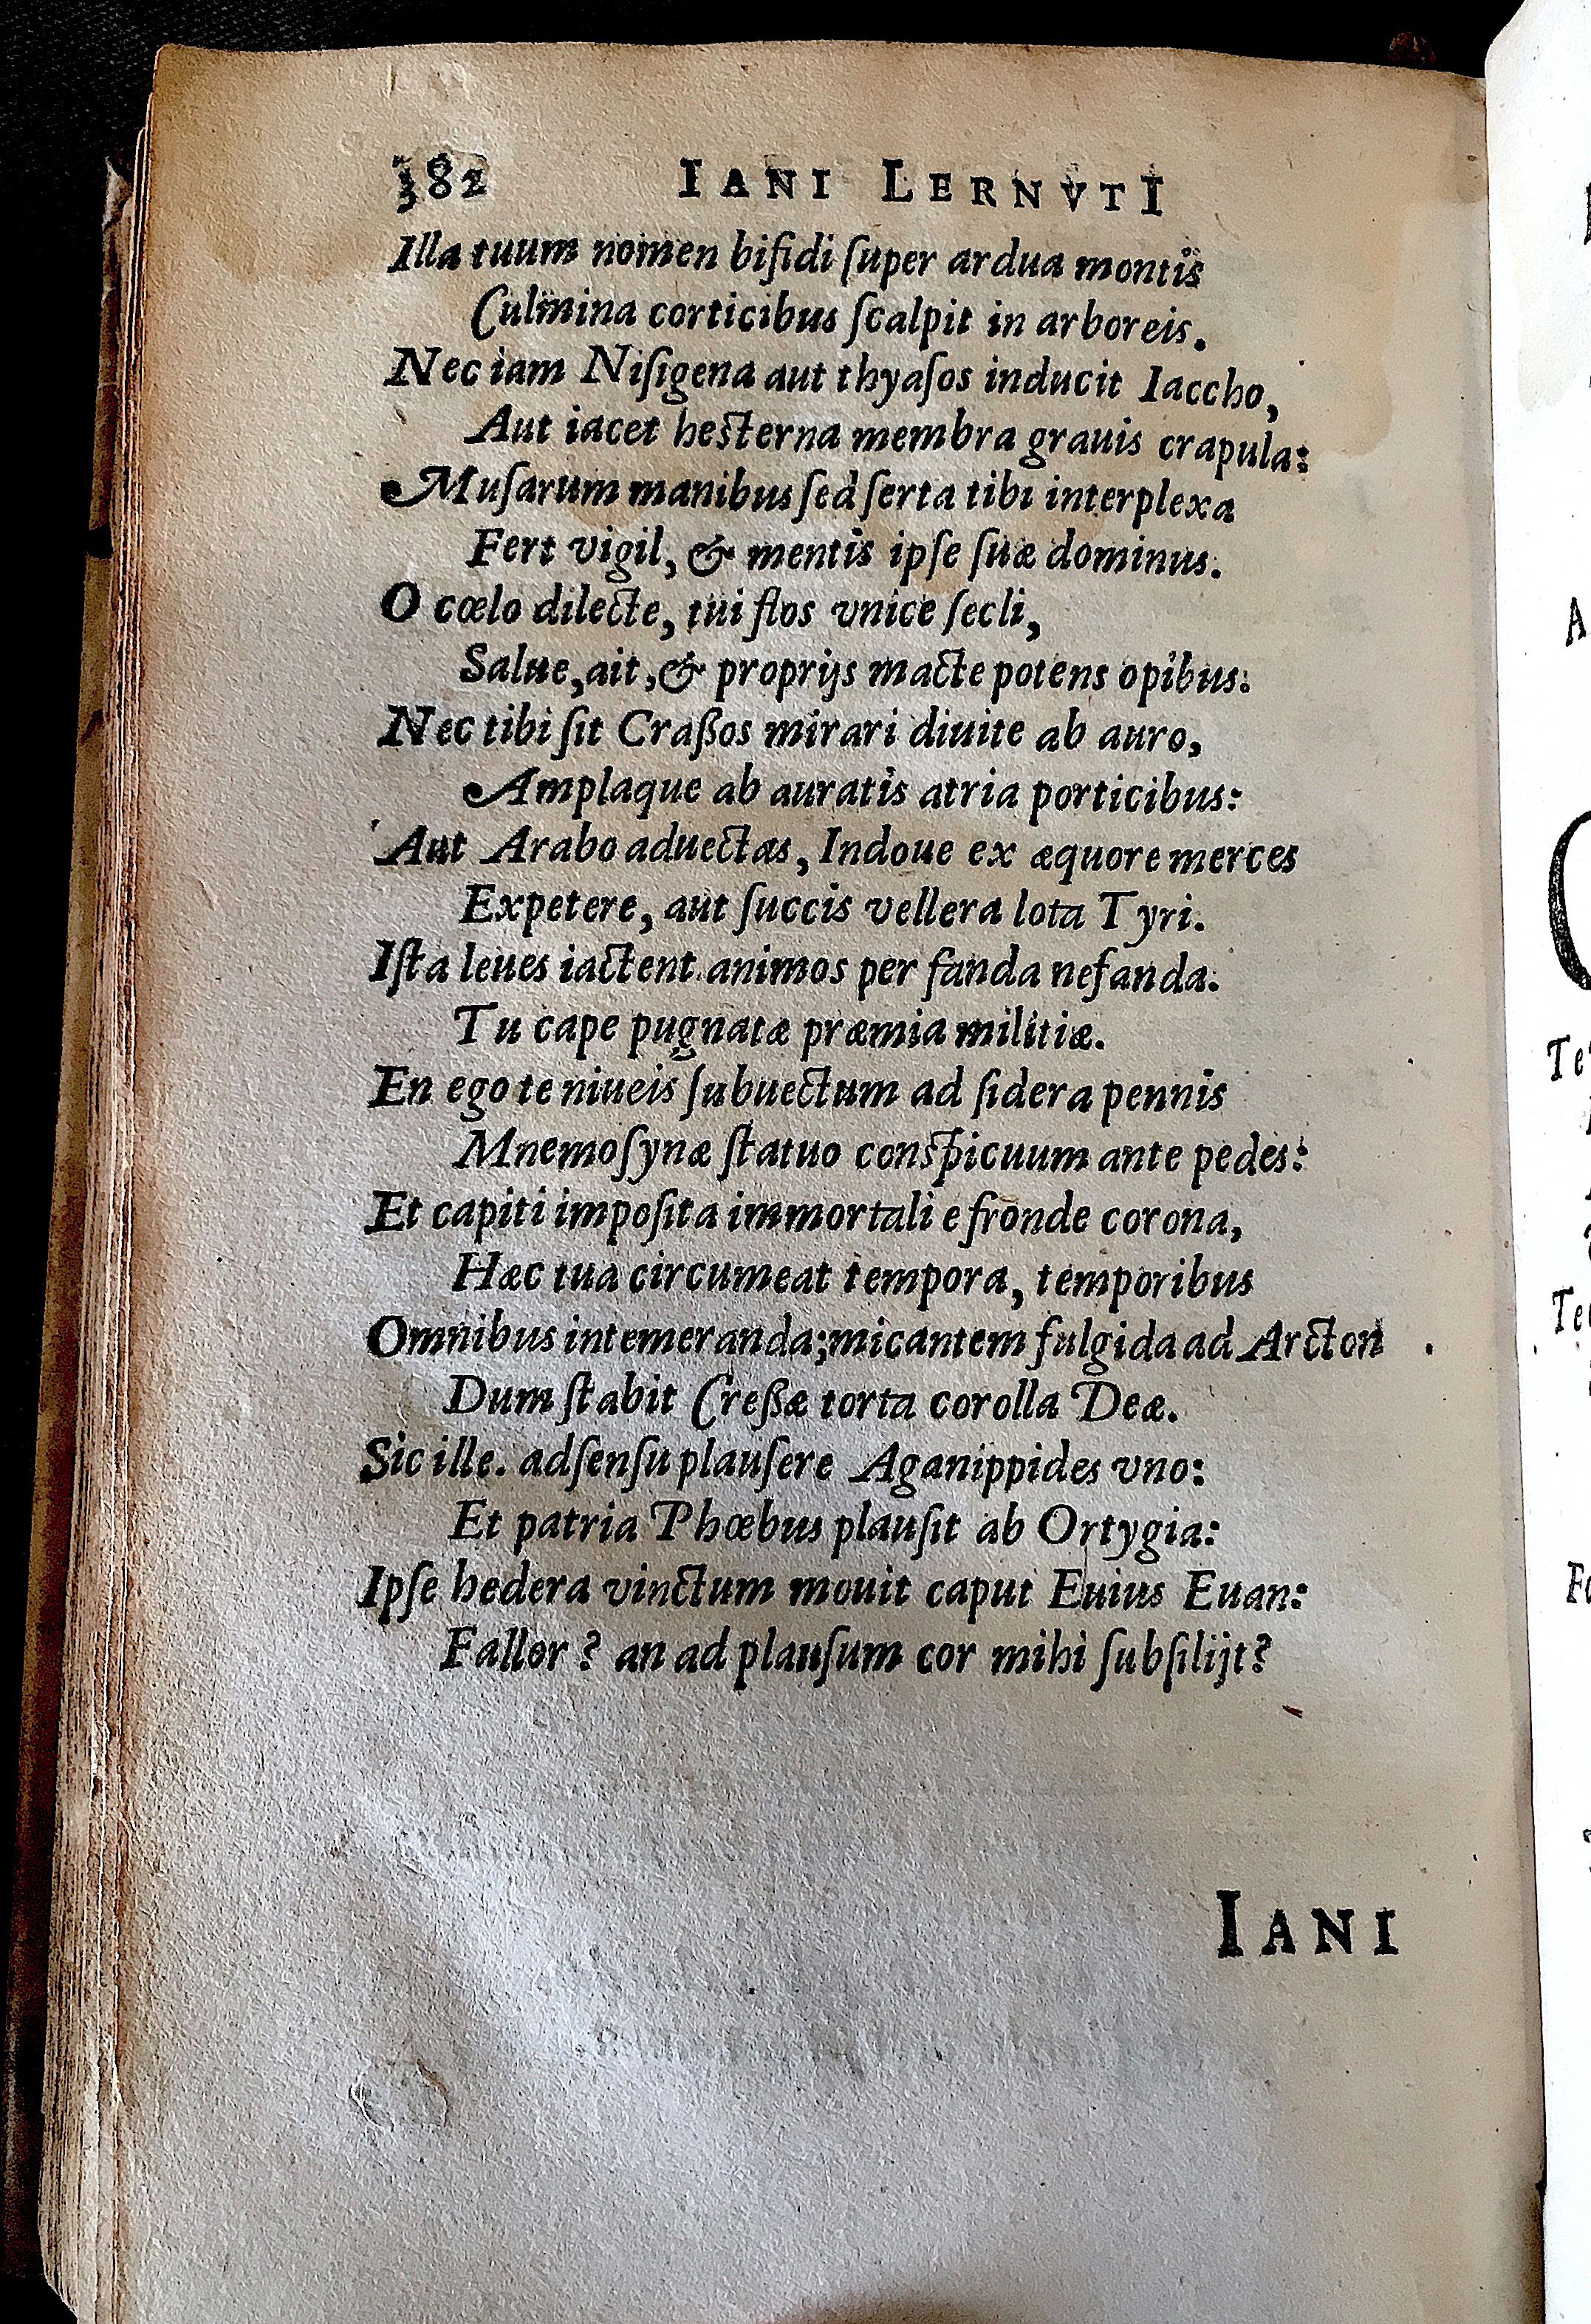 382 IANI LERNVTI
Illa tuum nomen bifidi ſuper ardua montis
Culmina corticibus ſcalpit in arboreis.
Nec iam Niſigena aut thyaſos inducit Iaccho,
Aut iacet heſterna membra grauis crapula:
Muſarum manibus ſed ſerta tibi interplexa
Fert vigil, & mentis ipſe ſuæ dominus.
O cœlo dilecte, tui flos vnice ſecli,
Salue, ait, & proprijs macte potens opibus.
Nec tibi ſit Craßos mirari diuite ab auro,
Amplaque ab auratis atria porticibus:
Aut Arabo aduectas, Indoue ex æquore merces
Expetere, aut ſuccis vellera lota Tyri.
Iſta leues iactent animos per fanda nefanda.
Tu cape pugnatæ præmia militiæ.
En ego te niueis ſubuectum ad ſidera pennis
Mnemoſynæ ſtatuo conſpicuum ante pedes:
Et capiti impoſita immortali e fronde corona,
Hæc tua circumeat tempora, temporibus
Omnibus intemeranda; micantem fulgida ad Arcton
Dum ſtabit Creßæ torta corolla Deæ.
Sic ille. adſenſu plauſere Aganippides vno:
Et patria Phœbus plauſit ab Ortygia:
Ipſe hedera vinctum mouit caput Euius Euan:
Fallor? an ad plauſum cor mihi ſubſilijt?
IANI